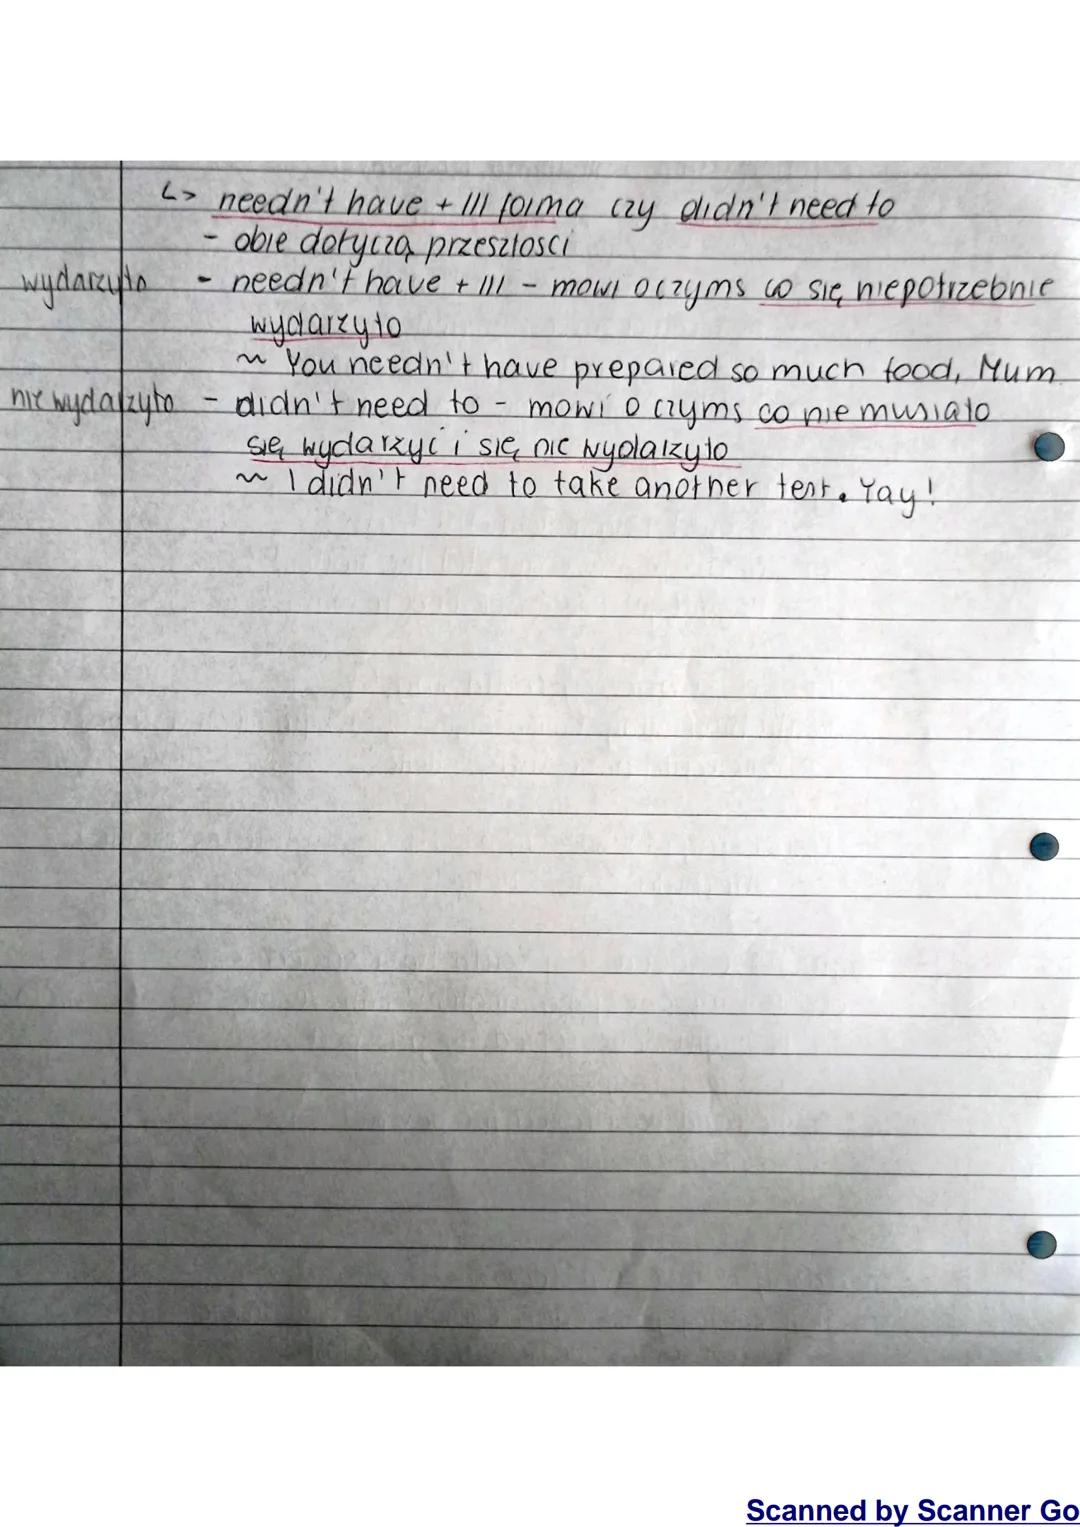 ↳ needn't have + III forma czy didn't need to
- obie dotyczą przeszlosci
wydarzyło - needn't have + III - mowi o czyms co się niepotrzebnie
wydarzyło
~ You needn't have prepared so much food, Mum.
nie wydarzyło - didn't need to - mowi o czyms co nie musiało
się wydarzyć i się nie wydarzyło
~ I didn't need to take another test. Yay!
Scanned by Scanner Go